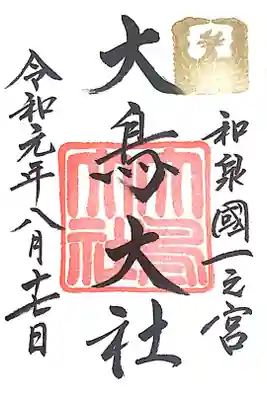 和泉國一之宮
大鳥大社
令和元年八月十七日